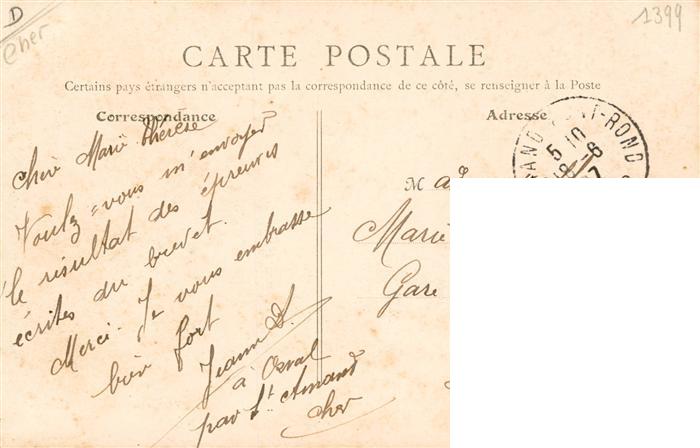 D
Cher
1399
CARTE POSTALE
Certains pays étrangers n'acceptant pas la correspondance de ce côté, se renseigner à la Poste
Correspondance
Adresse
Chère Marie Thérèse
Voulez-vous m'envoyer
le résultat des épreuves
écrites du brevet.
Merci. Je vous embrasse
bien fort
Jeanne D.
à Orval
par St Amand
Cher
5 10
M
Marie
Gare